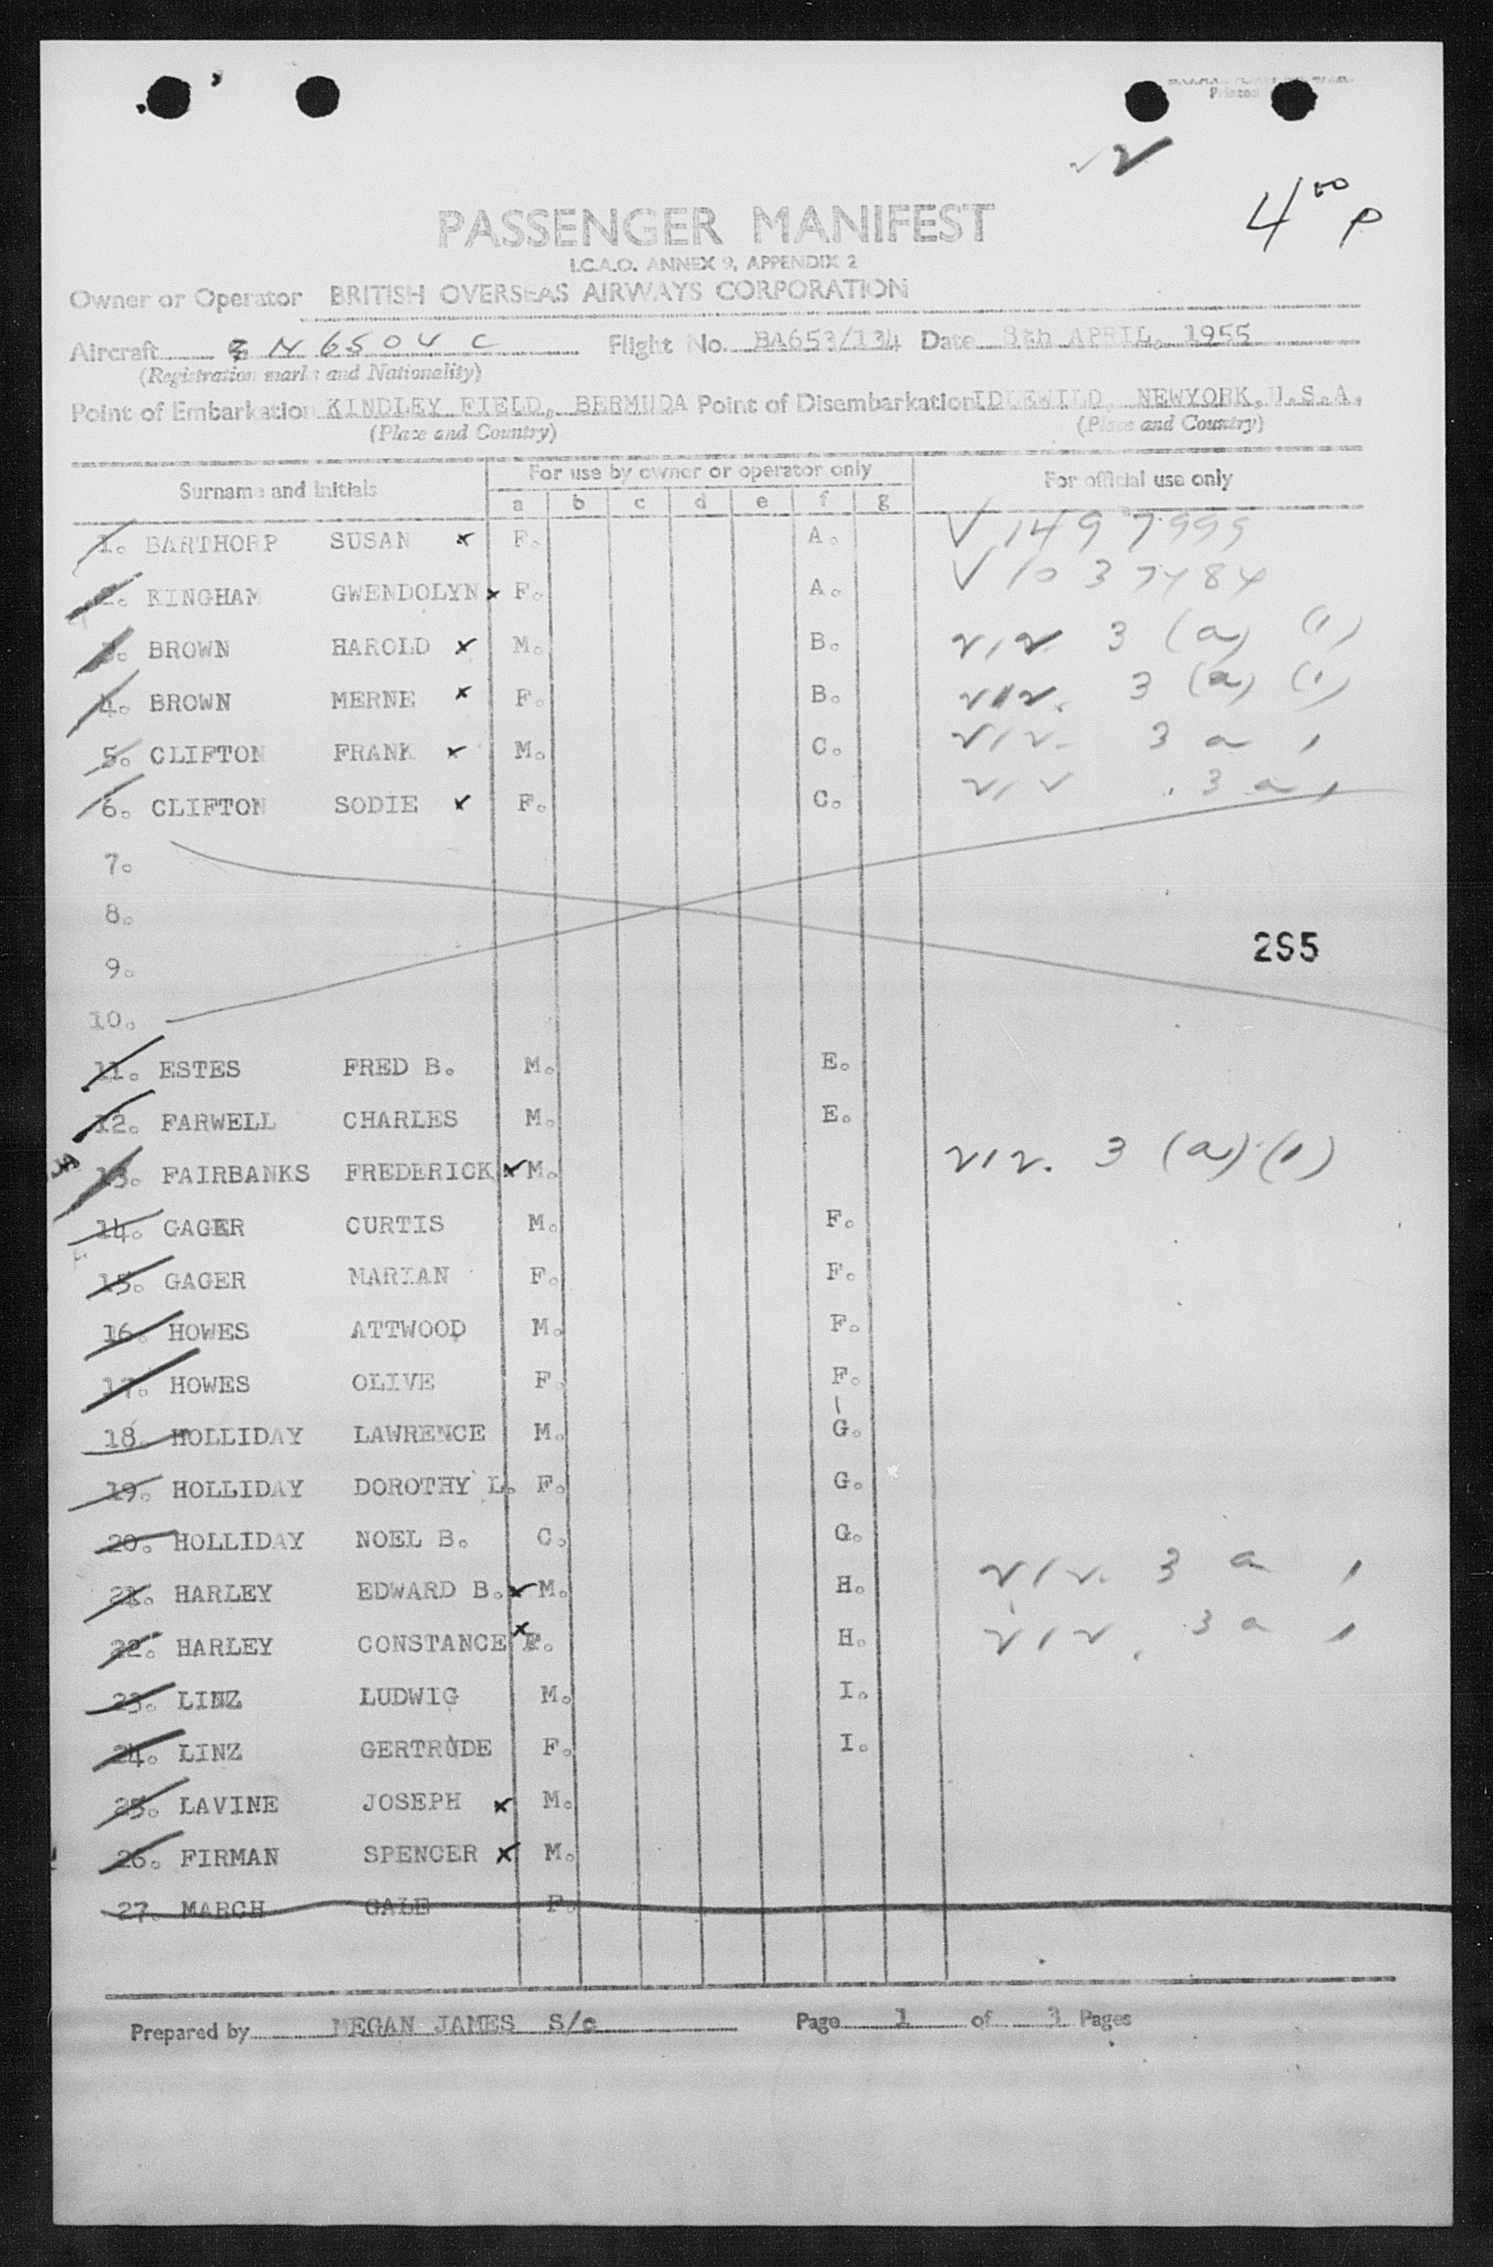 Printed
4 00 P
PASSENGER MANIFEST
I.C.A.O. ANNEX 9, APPENDIX 2
Owner or Operator BRITISH OVERSEAS AIRWAYS CORPORATION
Aircraft N 6504 C Flight No. BA653/134 Date 8th APRIL. 1955
(Registration marks and Nationality)
Point of Embarkation KINDLEY FIELD, BERMUDA Point of Disembarkation IDLEWILD, NEWYORK, U.S.A.
(Place and Country) (Place and Country)
Surname and initials For use by owner or operator only For official use only
a b c d e f g
1. BARTHORP SUSAN x F. A. V 1497999
2. KINGHAM GWENDOLYN x F. A. V 1037484
3. BROWN HAROLD x M. B. 3 (a) (1)
4. BROWN MERNE x F. B. 3 (a) (1)
5. CLIFTON FRANK x M. C. 3 a 1
6. CLIFTON SODIE x F. C. 3 a 1
7.
8.
9.
10.
285
11. ESTES FRED B. M. E.
12. FARWELL CHARLES M. E.
13. FAIRBANKS FREDERICK x M. 3 (a) (1)
14. GAGER CURTIS M. F.
15. GAGER MARIAN F. F.
16. HOWES ATTWOOD M. F.
17. HOWES OLIVE F. F.
18. HOLLIDAY LAWRENCE M. G.
19. HOLLIDAY DOROTHY L. F. G.
20. HOLLIDAY NOEL B. C. G.
21. HARLEY EDWARD B. x M. H. 3 a 1
22. HARLEY CONSTANCE x F. H. 3 a 1
23. LINZ LUDWIG M. I.
24. LINZ GERTRUDE F. I.
25. LAVINE JOSEPH x M.
26. FIRMAN SPENCER x M.
27. MARCH GALE F.
Prepared by MEGAN JAMES S/c Page 1 of 3 Pages